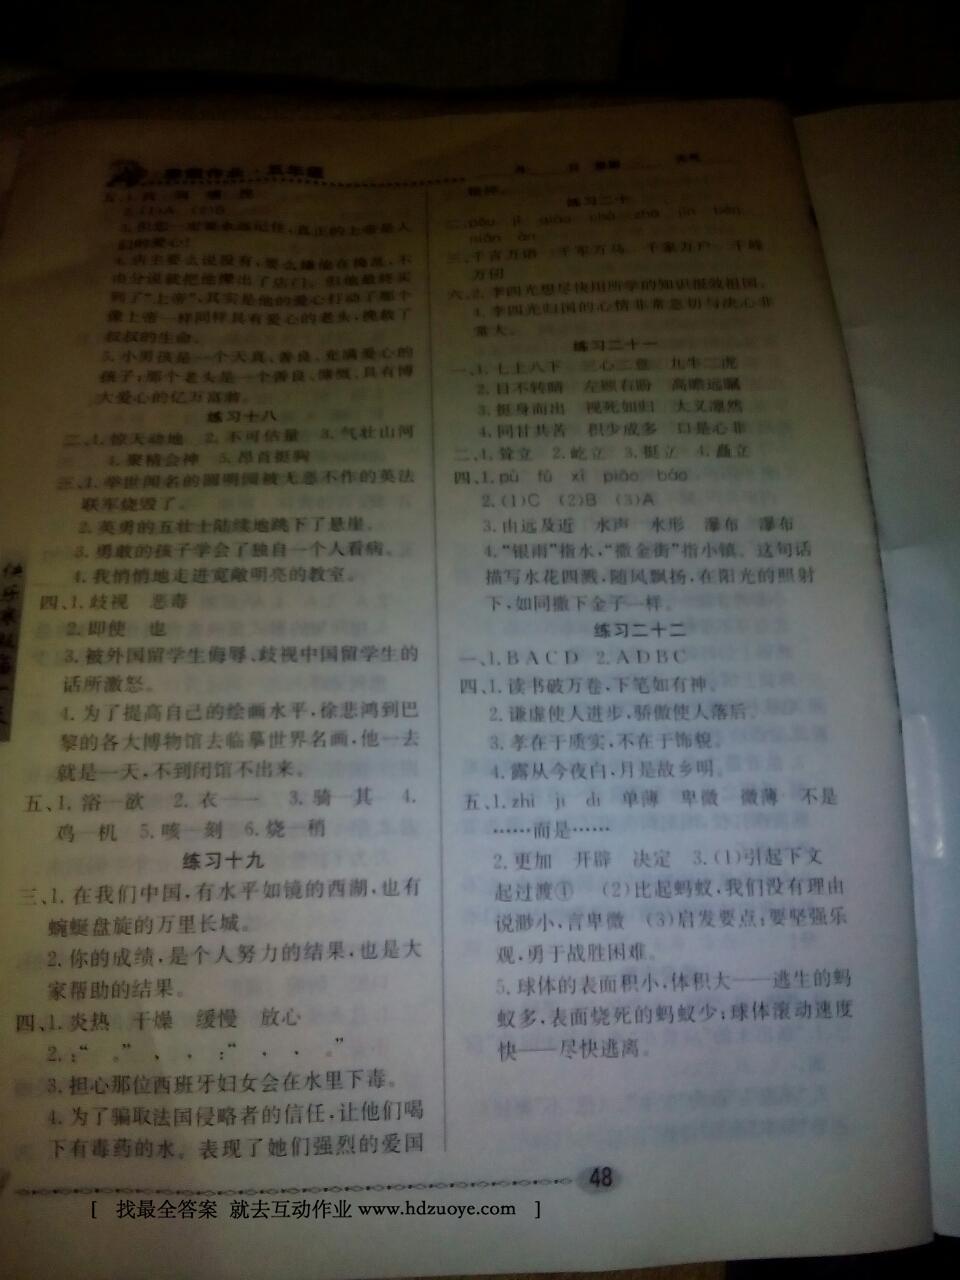 寒假作业·五年级
月 日 星期 天气
2.(1)A (2)B
3.但您一定要永远记住,真正的上帝是人
们的爱心!
4.店主要么说没有,要么嫌他在捣乱,不
由分说就把他撵出了店门。但他最终买
到了“上帝”,其实是他的爱心打动了那个
像上帝一样同样具有爱心的老头,挽救了
叔叔的生命。
5.小男孩是一个天真、善良、充满爱心的
孩子;那个老头是一个善良、慷慨、具有博
大爱心的亿万富翁。
练习十八
二、1.惊天动地 2.不可估量 3.气壮山河
4.聚精会神 5.昂首挺胸
三、1.举世闻名的圆明园被无恶不作的英法
联军烧毁了。
2.英勇的五壮士陆续地跳下了悬崖。
3.勇敢的孩子学会了独自一个人看病。
4.我悄悄地走进宽敞明亮的教室。
四、1.歧视 恶毒
2.即使 也
3.被外国留学生侮辱、歧视中国留学生的
话所激怒。
4.为了提高自己的绘画水平,徐悲鸿到巴
黎的各大博物馆去临摹世界名画,他一去
就是一天,不到闭馆不出来。
五、1.浴—欲 2.衣—一 3.骑—其 4.
鸡—机 5.咳—刻 6.烧—稍
练习十九
三、1.在我们中国,有水平如镜的西湖,也有
蜿蜒盘旋的万里长城。
2.你的成绩,是个人努力的结果,也是大
家帮助的结果。
四、1.炎热 干燥 缓慢 放心
2.:“ 。”、、:“ 、 、 。”
3.担心那位西班牙妇女会在水里下毒。
4.为了骗取法国侵略者的信任,让他们喝
下有毒药的水。表现了她们强烈的爱国
精神。
练习二十
三、千言万语 千军万马 千家万户 千峰
万仞
六、2.李四光想尽快用所学的知识报效祖国。
4.李四光归国的心情非常急切与决心非
常大。
练习二十一
一、1.七上八下 三心二意 九牛二虎
2.目不转睛 左顾右盼 高瞻远瞩
3.挺身而出 视死如归 大义凛然
4.同甘共苦 积少成多 口是心非
二、1.耸立 2.屹立 3.挺立 4.矗立
四、1.pù fǔ xì piāo báo
2.(1)C (2)B (3)A
3.由远及近 水声 水形 瀑布 瀑布
4.“银雨”指水,“撒金街”指小镇。这句话
描写水花四溅,随风飘扬,在阳光的照射
下,如同撒下金子一样。
练习二十二
一、1.B A C D 2.A D B C
四、1.读书破万卷,下笔如有神。
2.谦虚使人进步,骄傲使人落后。
3.孝在于质实,不在于饰貌。
4.露从今夜白,月是故乡明。
五、1.zhì jì dì 单薄 卑微 微薄 不是
……而是……
2.更加 开辟 决定 3.(1)引起下文
起过渡① (2)比起蚂蚁,我们没有理由
说渺小,言卑微 (3)启发要点:要坚强乐
观,勇于战胜困难。
5.球体的表面积小,体积大——逃生的蚂
蚁多,表面烧死的蚂蚁少;球体滚动速度
快——尽快逃离。
48
[ 找最全答案 就去互动作业 www.hdzuoye.com ]